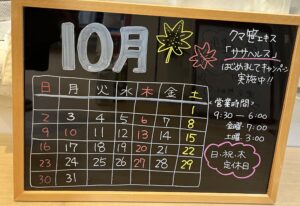 10月
クマ笹エキス
「ササヘルス」
はじめましてキャンペーン
実施中!!
日 月 火 水 木 金 土
1
2 3 4 5 6 7 8
9 10 11 12 13 14 15
16 17 18 19 20 21 22
23 24 25 26 27 28 29
30 31
〈営業時間〉
9:30 ー 6:00
金曜 7:00
土曜 3:00
日.祝.木
定休日